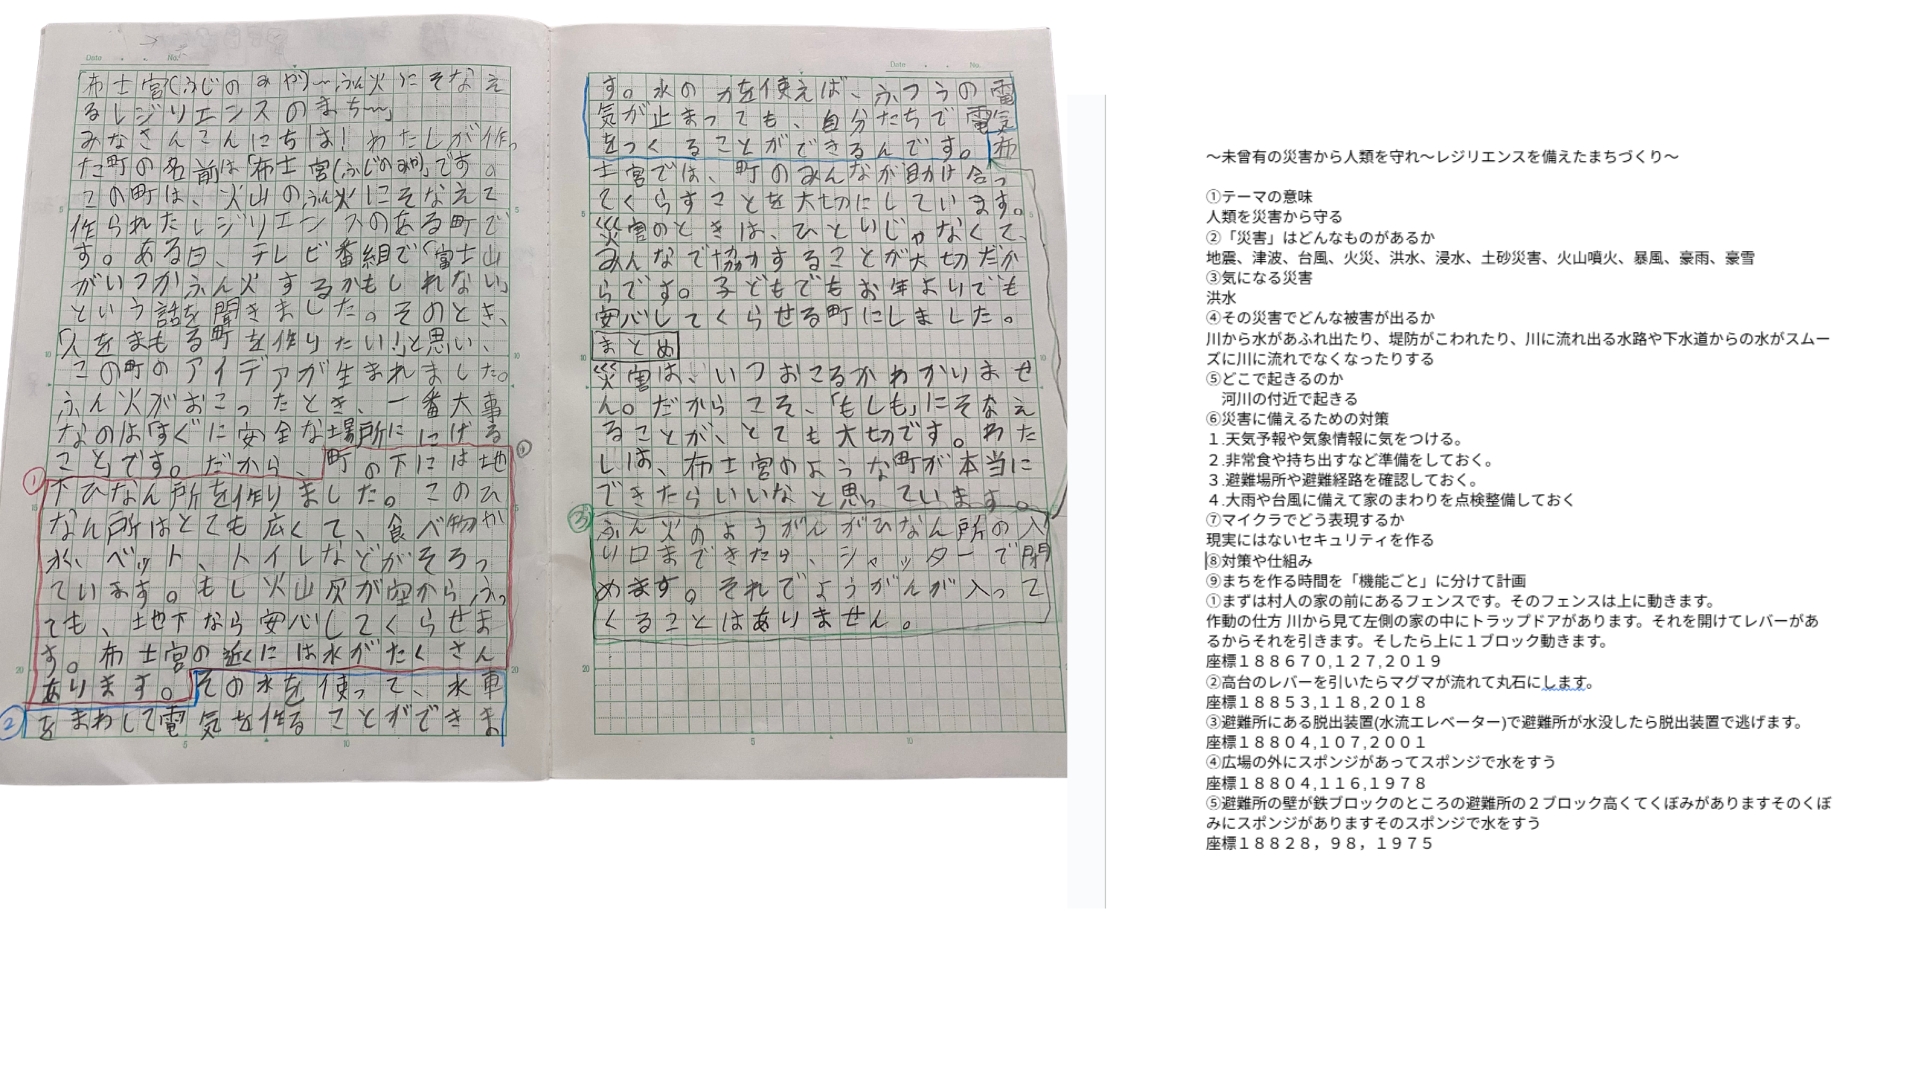 Date
No.
「布士宮(ふじのみや)〜ふん火にそなえ
るレジリエンスのまち〜」
みなさんこんにちは！わたしが作っ
た町の名前は「布士宮(ふじのみや)」です。
この町は、火山のふん火にそなえて
作られたレジリエンスのある町で
す。ある日、テレビ番組で「富士山
がいつかふん火するかもしれない」
という話を聞きました。そのとき、
「人をまもる町を作りたい！」と思い、
この町のアイデアが生まれました。
ふん火がおこったとき、一番大事
なのは「すぐに安全な場所ににげる
こと」です。だから、町の下には地
①
下ひなん所を作りました。このひ
なん所はとても広くて、食べ物か
水、ベット、トイレなどがそろっ
ています。もし火山灰が空からふっ
ても、地下なら安心してくらせま
す。布士宮の近くには水がたくさん
あります。その水を使って、水車
②
をまわして電気を作ることができま
Date
No.
す。水の力を使えば、ふつうの電
気が止まっても、自分たちで電気
をつくることができるんです。布
士宮では、町のみんなが助け合っ
てくらすことを大切にしています。
災害のときは、ひといじゃなくて、
みんなで協力することが大切だか
らです。子どもでもお年よりでも
安心してくらせる町にしました。
まとめ
災害は、いつおこるかわかりませ
ん。だからこそ、「もしも」にそなえ
ることが、とても大切です。わた
しは、布士宮のような町が本当に
できたらいいなと思っています。
③
ふん火のようがんがひなん所の入
り口まできたら、シャッターで閉
めます。それでようがんが入って
くることはありません。
〜未曾有の災害から人類を守れ〜レジリエンスを備えたまちづくり〜
①テーマの意味
人類を災害から守る
②「災害」はどんなものがあるか
地震、津波、台風、火災、洪水、浸水、土砂災害、火山噴火、暴風、豪雨、豪雪
③気になる災害
洪水
④その災害でどんな被害が出るか
川から水があふれ出たり、堤防がこわれたり、川に流れ出る水路や下水道からの水がスムー
ズに川に流れでなくなったりする
⑤どこで起きるのか
　河川の付近で起きる
⑥災害に備えるための対策
１.天気予報や気象情報に気をつける。
２.非常食や持ち出すなど準備をしておく。
３.避難場所や避難経路を確認しておく。
４.大雨や台風に備えて家のまわりを点検整備しておく
⑦マイクラでどう表現するか
現実にはないセキュリティを作る
⑧対策や仕組み
⑨まちを作る時間を「機能ごと」に分けて計画
①まずは村人の家の前にあるフェンスです。そのフェンスは上に動きます。
作動の仕方 川から見て左側の家の中にトラップドアがあります。それを開けてレバーがあ
るからそれを引きます。そしたら上に１ブロック動きます。
座標１８８６７０,１２７,２０１９
②高台のレバーを引いたらマグマが流れて丸石にします。
座標１８８５３,１１８,２０１８
③避難所にある脱出装置(水流エレベーター)で避難所が水没したら脱出装置で逃げます。
座標１８８０４,１０７,２００１
④広場の外にスポンジがあってスポンジで水をすう
座標１８８０４,１１６,１９７８
⑤避難所の壁が鉄ブロックのところの避難所の２ブロック高くてくぼみがありますそのくぼ
みにスポンジがありますそのスポンジで水をすう
座標１８８２８，９８，１９７５